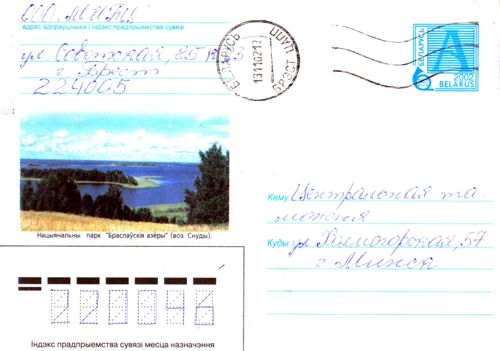 ООО "МИТЦ"
адрас адпраўшчыка і індэкс прадпрыемства сувязі
ул. Советская, 25
г Брест
224005
БЕЛАРУСЬ
13110217
БРЭСТ
БЕЛАРУСЬ
A
2002
BELARUS
Нацыянальны парк "Браслаўскія азёры" (воз. Снуды).
Каму Центральная та
можня
Куды ул Холмогорская, 57
г Минск
220046
Індэкс прадпрыемства сувязі месца назначэння